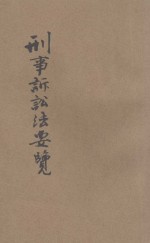 刑事訴訟法要覽